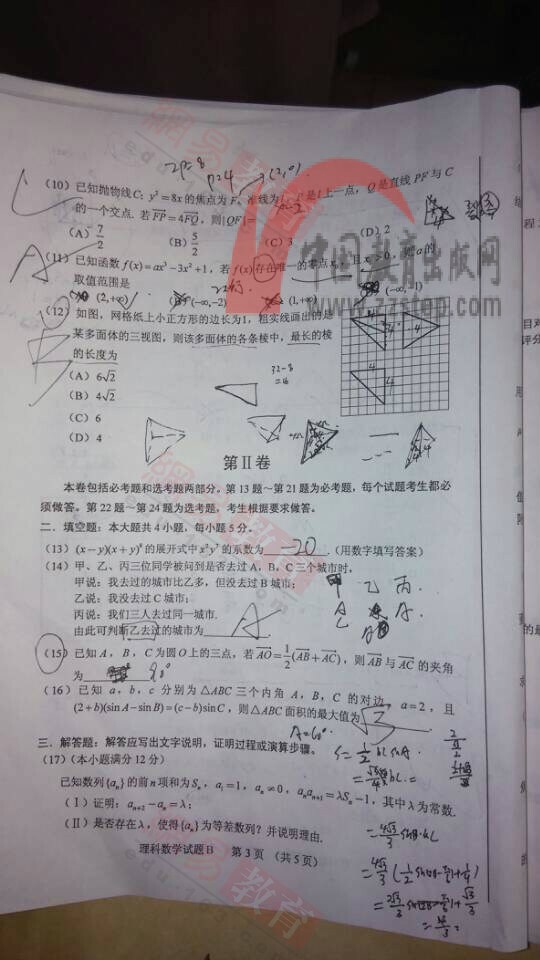 2p=8
p=4 → (2,0)
(10) 已知抛物线C: y²=8x的焦点为F、准线为l，P是l上一点，Q是直线PF与C
的一个交点. 若FP=4FQ，则|QF|=
(A) 7/2
(B) 5/2
(C) 3
(D) 2
(11) 已知函数f(x)=ax³-3x²+1，若f(x)存在唯一的零点x₀，且x₀>0，则a的
取值范围是
(2,+∞)
(-∞,-2)
(1,+∞)
(-∞,-1)
(12) 如图，网格纸上小正方形的边长为1，粗实线画出的是
某多面体的三视图，则该多面体的各条棱中，最长的棱
的长度为
(A) 6√2
(B) 4√2
(C) 6
(D) 4
第Ⅱ卷
本卷包括必考题和选考题两部分。第13题～第21题为必考题，每个试题考生都必
须做答。第22题～第24题为选考题，考生根据要求做答。
二．填空题：本大题共4小题，每小题5分。
(13) (x-y)(x+y)⁸的展开式中x²y⁷的系数为 -20 .(用数字填写答案)
(14) 甲、乙、丙三位同学被问到是否去过A，B，C三个城市时，
甲说：我去过的城市比乙多，但没去过B城市；
甲 乙 丙
乙说：我没去过C城市；
丙说：我们三人去过同一城市.
由此可判断乙去过的城市为 A
(15) 已知A，B，C为圆O上的三点，若AO=1/2(AB+AC)，则AB与AC的夹角
为 90°
(16) 已知a，b，c分别为△ABC三个内角A，B，C的对边，a=2，且
(2+b)(sinA-sinB)=(c-b)sinC，则△ABC面积的最大值为
A=60°
三．解答题：解答应写出文字说明，证明过程或演算步骤。
S=1/2 bc sinA
(17) (本小题满分12分)
已知数列{aₙ}的前n项和为Sₙ，a₁=1，aₙ≠0，aₙaₙ₊₁=λSₙ-1，其中λ为常数.
(Ⅰ) 证明：aₙ₊₂-aₙ=λ；
(Ⅱ) 是否存在λ，使得{aₙ}为等差数列？并说明理由.
理科数学试题B 第3页 (共5页)
网易教育
中国教育出版网
www.zzstep.com